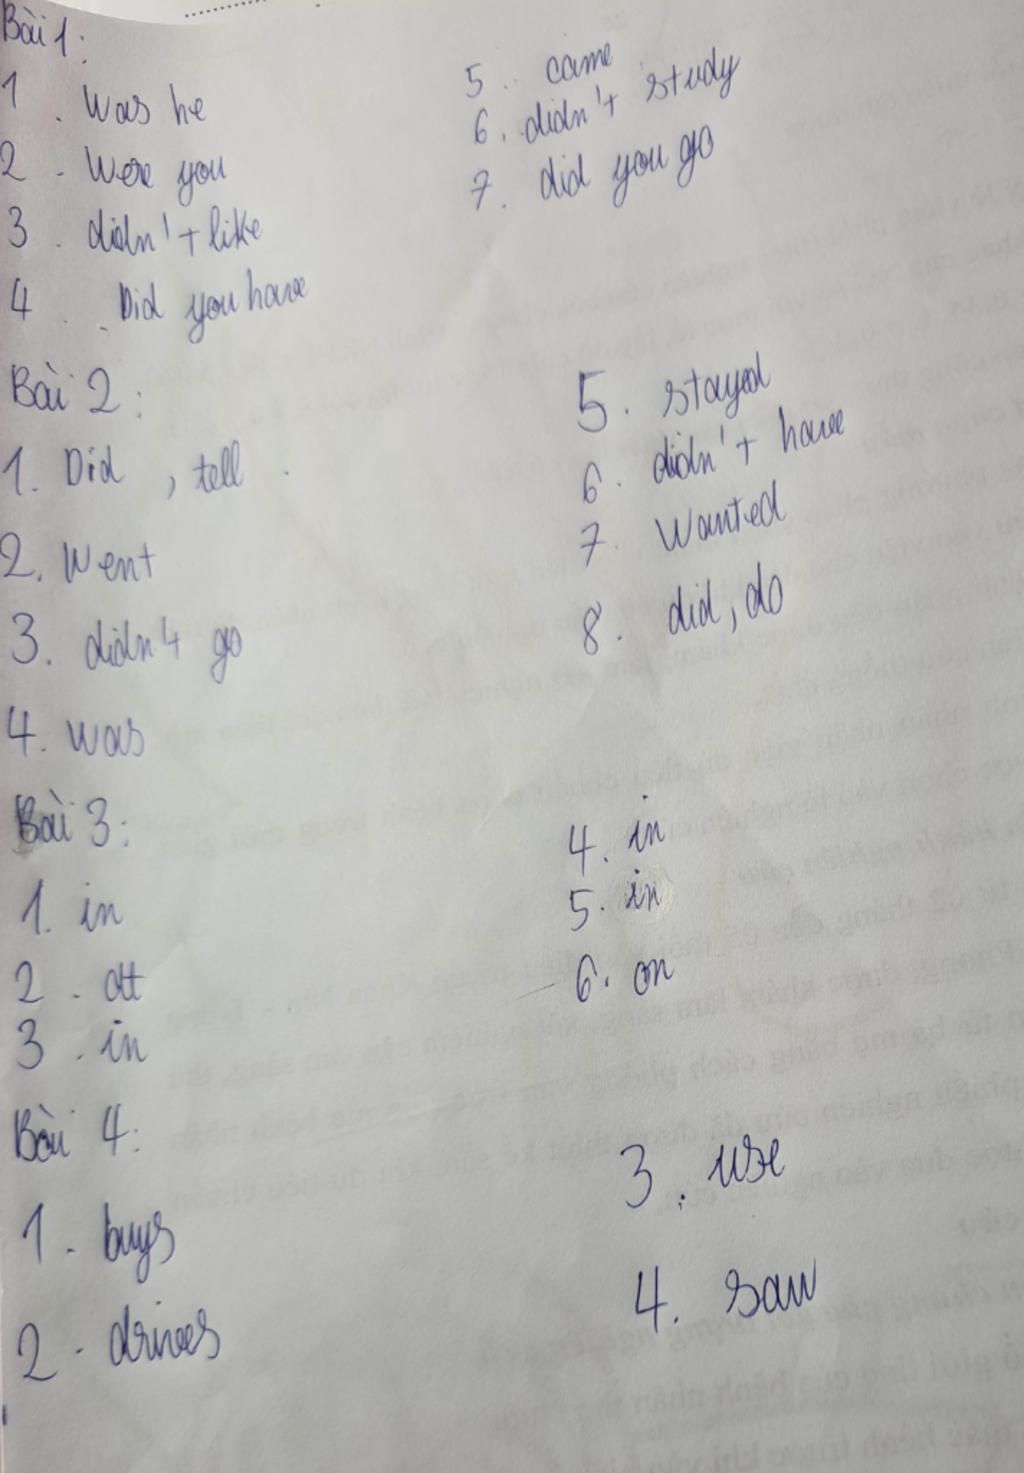 Bài 1:
1. Was he
2. Were you
3. didn't like
4. Did you have
5. came
6. didn't study
7. did you go
Bài 2:
1. Did, tell.
2. Went
3. didn't go
4. was
5. stayed
6. didn't have
7. Wanted
8. did, do
Bài 3:
1. in
2. at
3. in
4. in
5. in
6. on
Bài 4:
1. buys
2. drives
3. use
4. saw